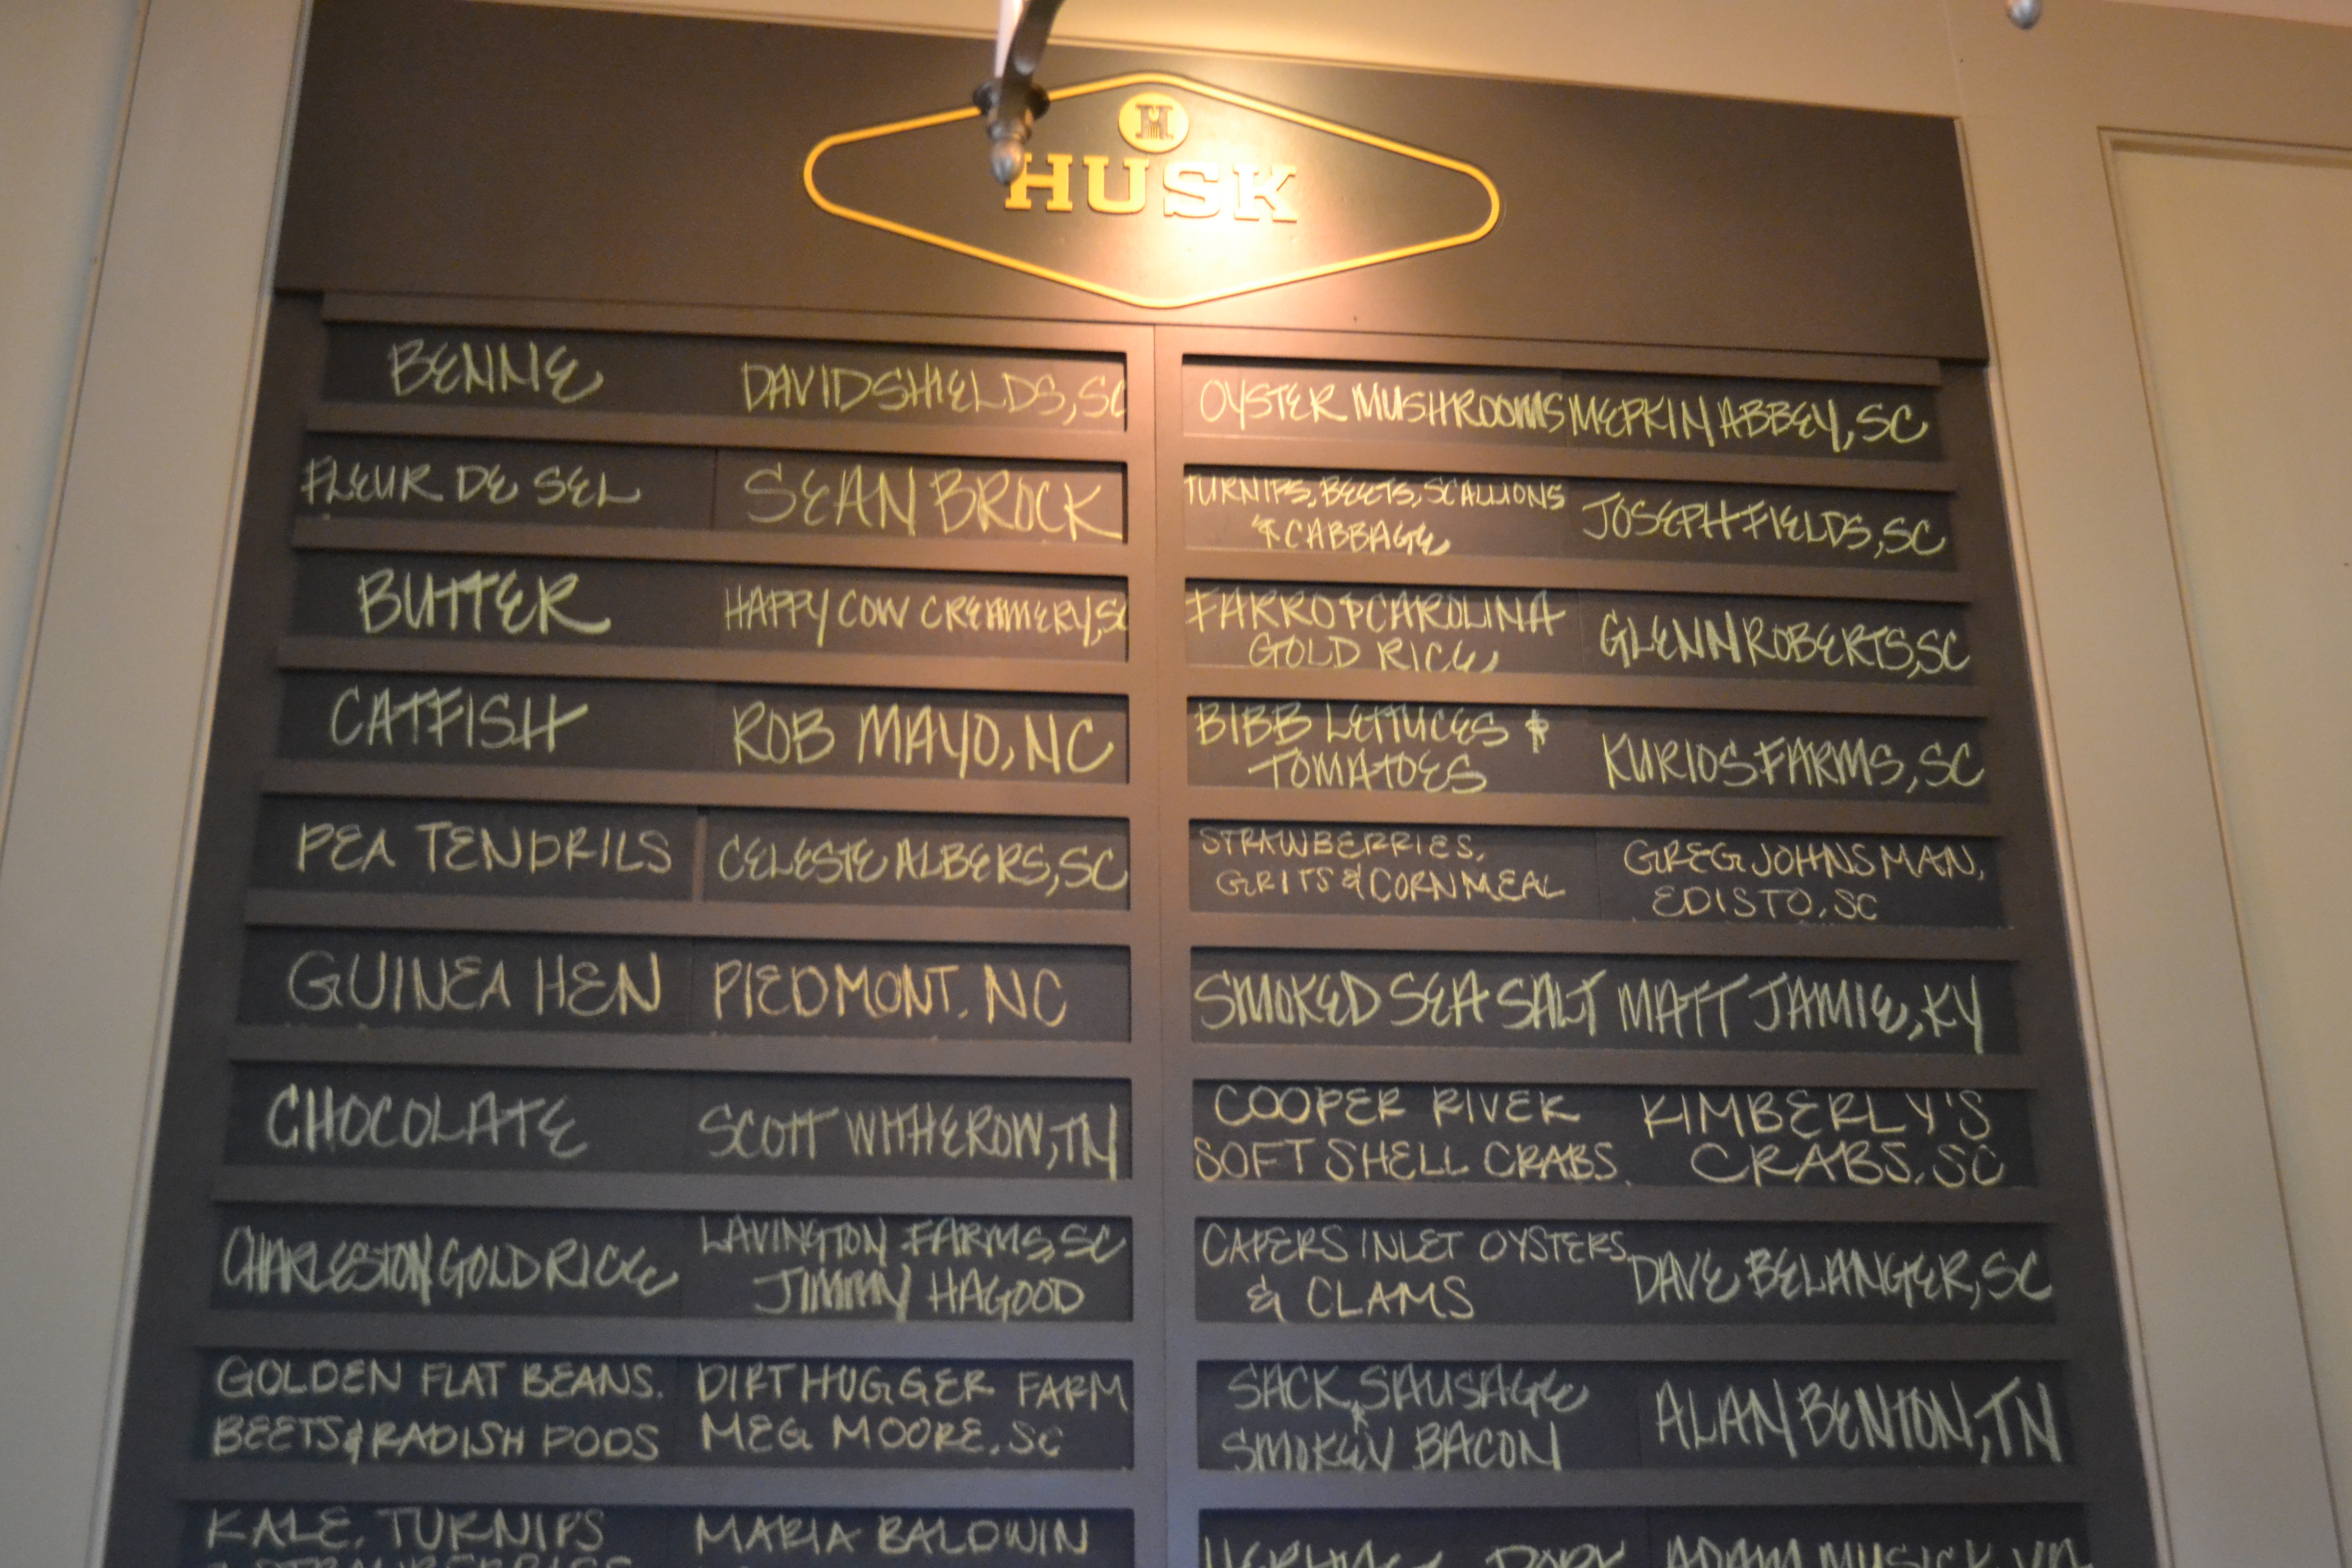 H
HUSK
BENNE DAVID SHIELDS, SC
FLEUR DE SEL SEAN BROCK
BUTTER HAPPY COW CREAMERY, SC
CATFISH ROB MAYO, NC
PEA TENDRILS CELESTE ALBERS, SC
GUINEA HEN PIEDMONT, NC
CHOCOLATE SCOTT WITHEROW, TN
CHARLESTON GOLD RICE LAVINGTON FARMS, SC
JIMMY HAGOOD
GOLDEN FLAT BEANS. DIRTHUGGER FARM
BEETS & RADISH PODS MEG MOORE, SC
KALE, TURNIPS MARIA BALDWIN
STRAWBERRIES
OYSTER MUSHROOMS MEPKIN ABBEY, SC
TURNIPS, BEETS, SCALLIONS
& CABBAGE JOSEPH FIELDS, SC
FARRO & CAROLINA
GOLD RICE GLENN ROBERTS, SC
BIBB LETTUCES &
TOMATOES KURIOS FARMS, SC
STRAWBERRIES, GREG JOHNSMAN,
GRITS & CORNMEAL EDISTO, SC
SMOKED SEA SALT MATT JAMIE, KY
COOPER RIVER KIMBERLY'S
SOFT SHELL CRABS. CRABS, SC
CAPERS INLET OYSTERS
& CLAMS DAVE BELANGER, SC
SACK SAUSAGE
&
SMOKEY BACON ALAN BENTON, TN
PORK ADAM MUSICK